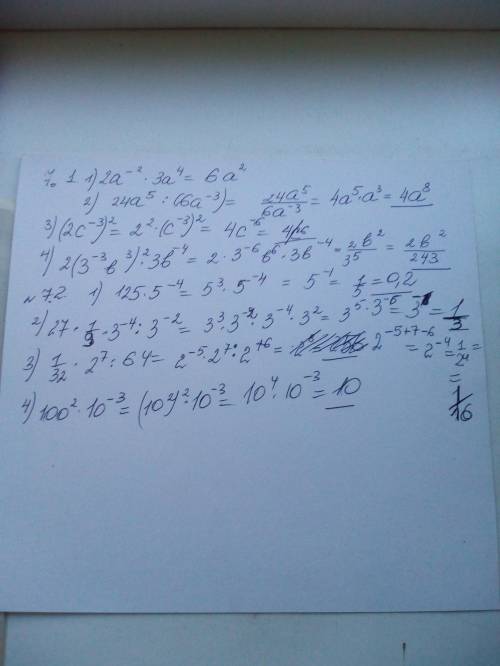 № 7.1. 1) 2a⁻² · 3a⁴ = 6a²
2) 24a⁵ : (6a⁻³) = 24a⁵/6a⁻³ = 4a⁵·a³ = 4a⁸
3) (2c⁻³)² = 2²·(c⁻³)² = 4c⁻⁶ =
4) 2(3⁻³в³)²·3в⁻⁴ = 2·3⁻⁶в⁶·3в⁻⁴ = 2в²/3⁵ = 2в²/243
№ 7.2. 1) 125·5⁻⁴ = 5³·5⁻⁴ = 5⁻¹ = 1/5 = 0,2
2) 27·1/9·3⁻⁴:3⁻² = 3³·3⁻²·3⁻⁴·3² = 3⁵·3⁻⁶ = 3⁻¹ = 1/3
3) 1/32·2⁷:64 = 2⁻⁵·2⁷:2⁺⁶ = 2⁻⁵⁺⁷⁻⁶ = 2⁻⁴ = 1/2⁴ =
= 1/16
4) 100²·10⁻³ = (10²)²·10⁻³ = 10⁴·10⁻³ = 10